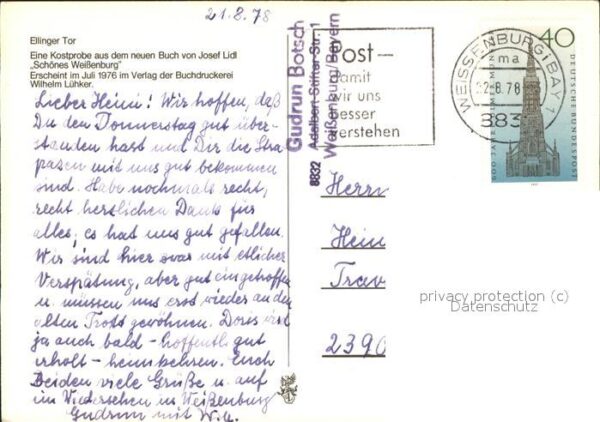 21.8.78
Ellinger Tor
Eine Kostprobe aus dem neuen Buch von Josef Lidl
„Schönes Weißenburg"
Erscheint im Juli 1976 im Verlag der Buchdruckerei
Wilhelm Lühker.
Lieber Heini! Wir hoffen, daß
Du den Donnerstag gut über-
standen hast und Dir die Stra-
pazen mit uns gut bekommen
sind. Habe nochmals recht,
recht herzlichen Dank für
alles; es hat uns gut gefallen.
Wir sind hier zwar mit etlicher
Verspätung, aber gut eingetroffen
u. müssen uns erst wieder an den
alten Trott gewöhnen. Doris wird
ja auch bald - hoffentl. gut
erholt - heimkehren. Euch
Beiden viele Grüße u. auf
ein Wiedersehen in Weißenburg
Gudrun mit W.u.
Gudrun Botsch
Adalbert-Stifter-Str. 1
8832 Weißenburg/Bayern
Post–
damit
wir uns
besser
verstehen
WEISSENBURG (BAY) 1
ma
22.-8.78
883
40
DEUTSCHE BUNDESPOST
600 JAHRE ULMER MÜNSTER
Herrn
Hein
Trav
2390
privacy protection (c)
Datenschutz